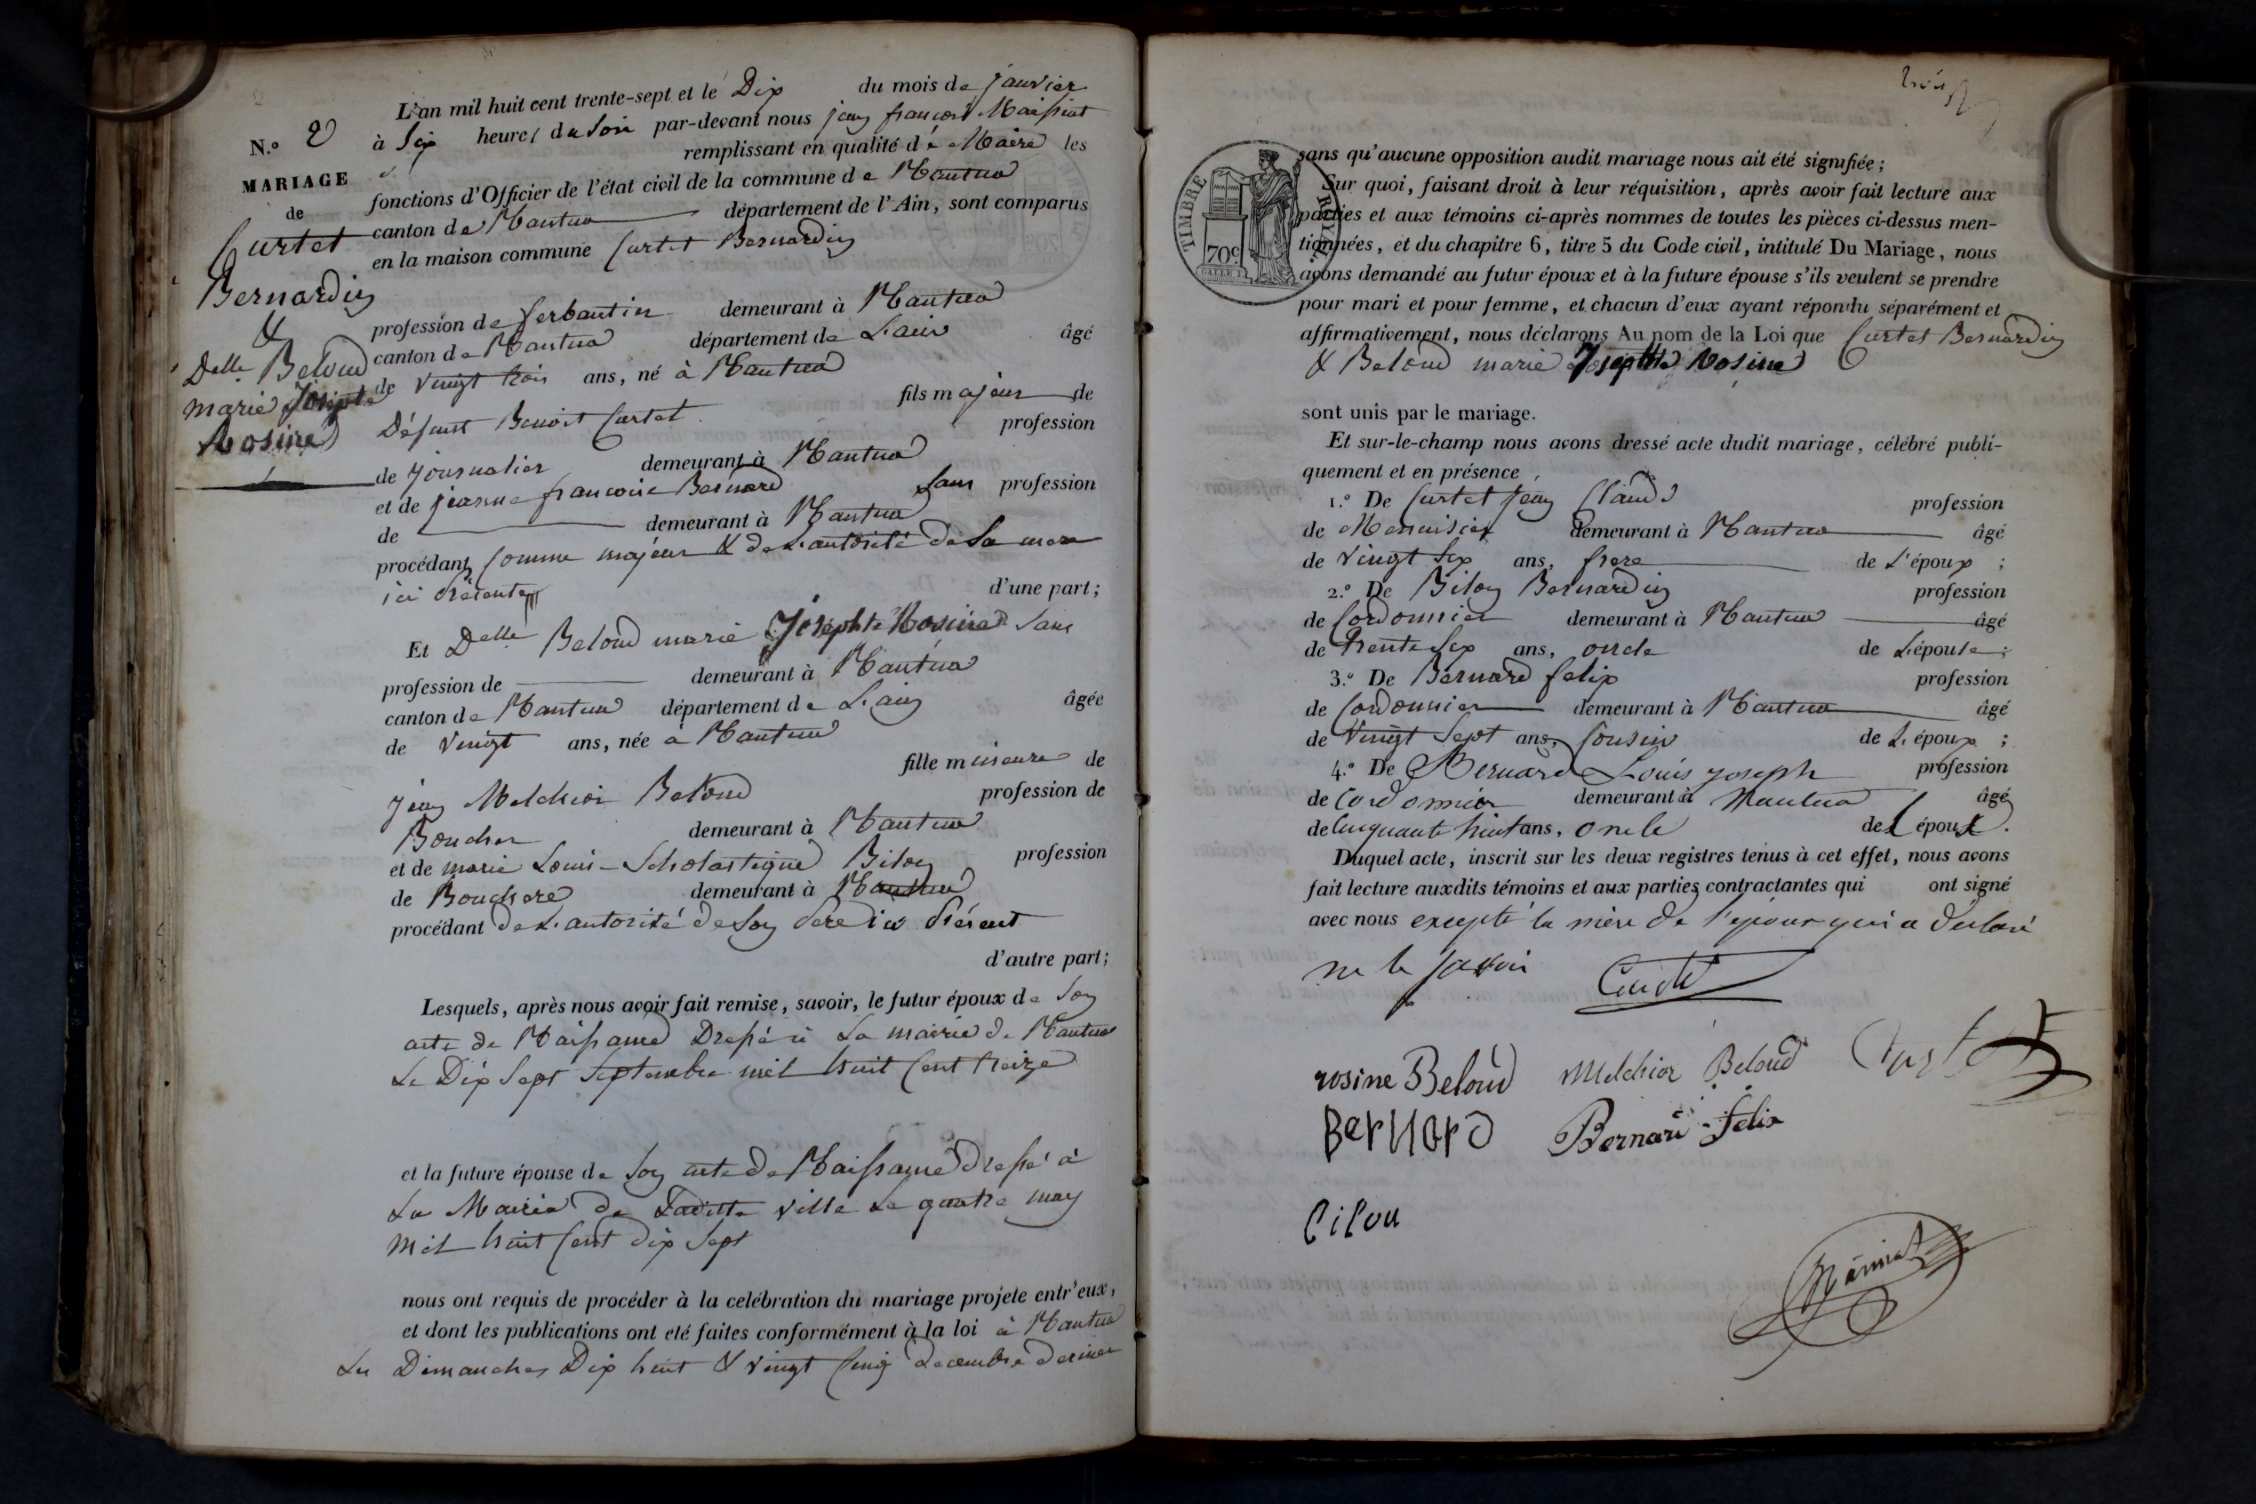 L'an mil huit cent trente-sept et le Dix du mois de janvier
N.o 2 à Six heures du Soir par-devant nous jean françois Maissiat
remplissant en qualité de Maire les
MARIAGE fonctions d'Officier de l'état civil de la commune de Nantua
de canton de Nantua département de l'Ain, sont comparus
Curtet en la maison commune Curtet Bernardin
Bernardin
& profession de ferblantier demeurant à Nantua
Delle Beloud canton de Nantua département de L'ain âgé
marie Josephte de vingt trois ans, né à Nantua
Rosine fils majeur de
Défunt Benoit Curtet profession
de journalier demeurant à Nantua
et de jeanne françoise Bernard Sans profession
de demeurant à Nantua
procédant comme majeur & de L'autorité de Sa mere
ici présente d'une part;
Et Delle Beloud marie Josephte Rosine Sans
profession de demeurant à Nantua
canton de Nantua département de L'ain âgée
de vingt ans, née à Nantua
fille mineure de
jean Melchior Beloud profession de
Boucher demeurant à Nantua
et de marie Louise Scholastique Bilon profession
de Bouchere demeurant à Nantua
procédant de L'autorité de Son Pere ici Présent
d'autre part;
Lesquels, après nous avoir fait remise, savoir, le futur époux de Son
acte de Naissance Dressé à La mairie de Nantua
Le Dix Sept Septembre mil huit Cent treize
et la future épouse de Son acte de Naissance dressé à
La Mairie de Laditte ville Le quatre may
mil huit Cent dix Sept
nous ont requis de procéder à la celébration du mariage projete entr'eux,
et dont les publications ont eté faites conformément à la loi à Nantua
Les Dimanches Dix huit & vingt Cinq decembre dernier
trois
sans qu'aucune opposition audit mariage nous ait été signifiée;
Sur quoi, faisant droit à leur réquisition, après avoir fait lecture aux
parties et aux témoins ci-après nommes de toutes les pièces ci-dessus men-
tionnées, et du chapitre 6, titre 5 du Code civil, intitulé Du Mariage, nous
avons demandé au futur époux et à la future épouse s'ils veulent se prendre
pour mari et pour femme, et chacun d'eux ayant répondu séparément et
affirmativement, nous déclarons Au nom de la Loi que Curtet Bernardin
& Beloud marie Josephte Rosine
TIMBRE ROYAL
70c
sont unis par le mariage.
Et sur-le-champ nous avons dressé acte dudit mariage, célébré publi-
quement et en présence
1.o De Curtet Jean Claude profession
de Menuisier demeurant à Nantua âgé
de vingt Six ans, frere de L'époux ;
2.o De Bilon Bernardin profession
de Cordonnier demeurant à Nantua âgé
de trente Six ans, oncle de L'épouse ;
3.o De Bernard felix profession
de Cordonnier demeurant à Nantua âgé
de vingt Sept ans, Cousin de L'époux ;
4.o De Bernard Louis joseph profession
de Cordonnier demeurant à Nantua âgé
de Cinquante huit ans, oncle de L'époux.
Duquel acte, inscrit sur les deux registres tenus à cet effet, nous avons
fait lecture auxdits témoins et aux parties contractantes qui ont signé
avec nous excepté la mère de l'époux qui a déclaré
ne le savoir Curtet
rosine Beloud Melchior Beloud Curtet
Bernard Bernard Felix
Bilon
Maissiat